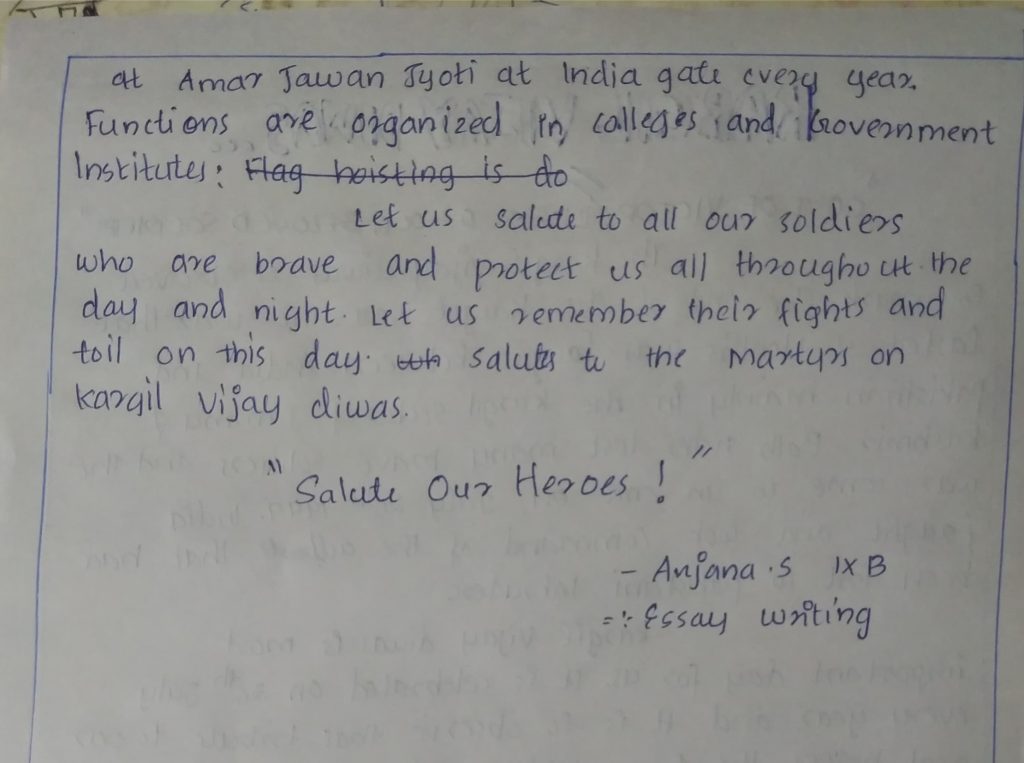 at Amar Jawan Jyoti at India gate every year.
Functions are organized in colleges and Government
Institutes: Flag hoisting is do
Let us salute to all our soldiers
who are brave and protect us all throughout the
day and night. Let us remember their fights and
toil on this day. salutes to the martyrs on
kargil vijay diwas.
"Salute Our Heroes!"
- Anjana.S IX B
=: Essay writing